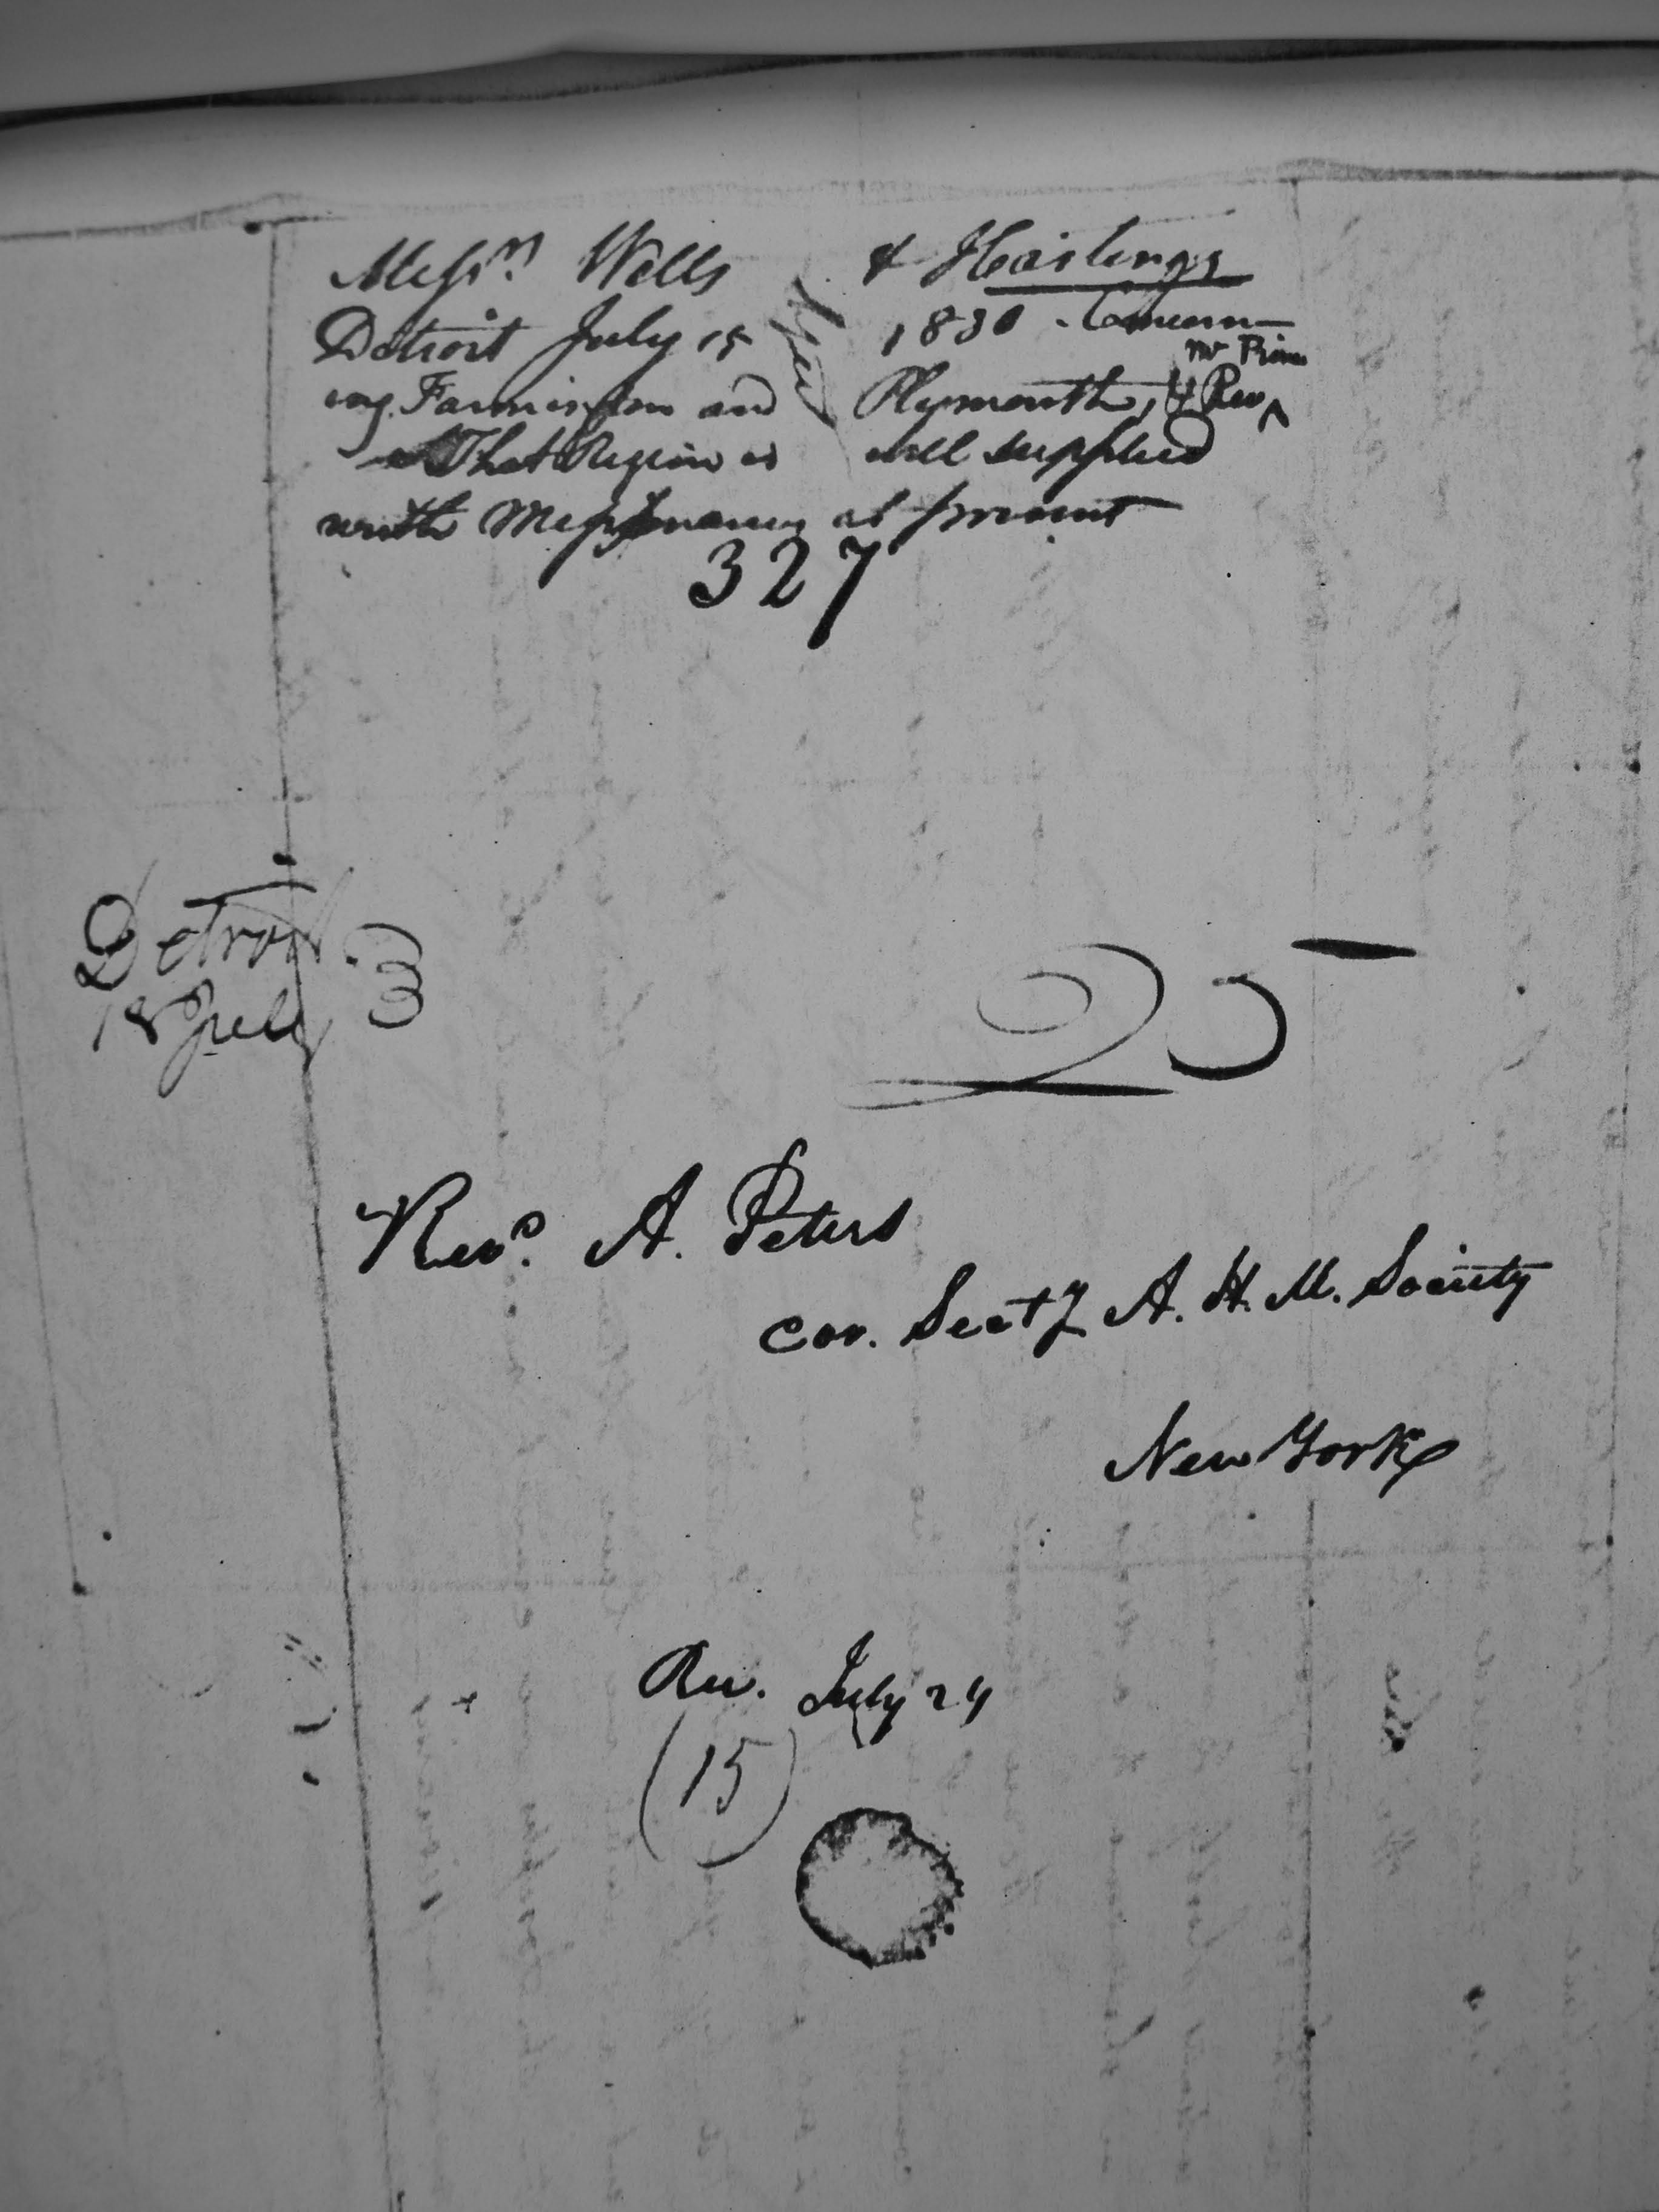 Messrs Wells & Hastings
Detroit July 15 1830. Concern-
Mr
ing Farmington and Plymouth, & Rev
That Region is well supplied
with Missionaries at present
327
Detroit
18 July
25
Revd. A. Peters
Cor. Secty A. H. M. Society
New York
Rec. July 24
(15)